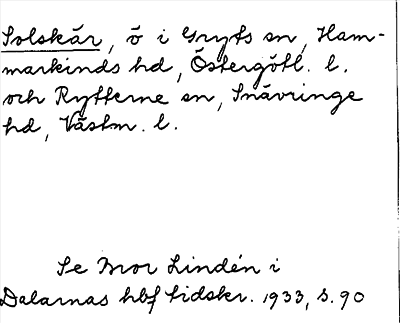 Solskär, ö i Gryts sn, Ham-
markinds hd, Östergötl. l.
och Rytterne sn, Snävringe
hd, Västm. l.
Se Bror Lindén i
Dalarnas hbf tidskr. 1933, s. 90